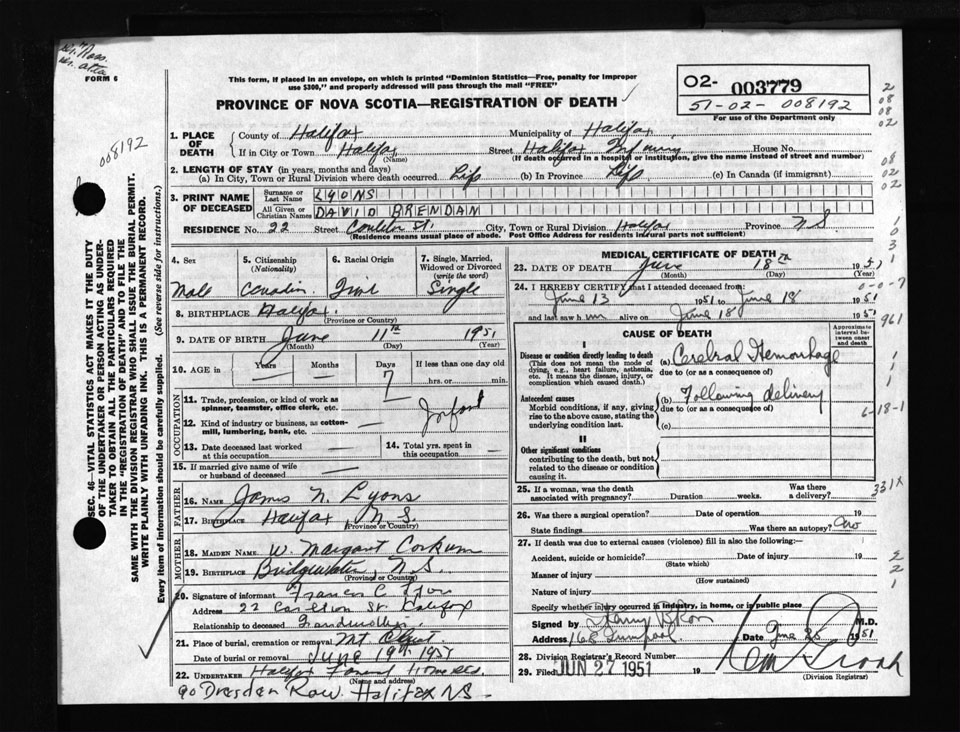 Dr. Ross.
FORM 6
This form, if placed in an envelope, on which is printed "Dominion Statistics—Free, penalty for improper
use $300," and properly addressed will pass through the mail "FREE"
PROVINCE OF NOVA SCOTIA—REGISTRATION OF DEATH
02- 003779
51-02- 008192
For use of the Department only
008192
SEC. 46—VITAL STATISTICS ACT MAKES IT THE DUTY
OF THE UNDERTAKER OR PERSON ACTING AS UNDER-
TAKER TO OBTAIN ALL THE PARTICULARS REQUIRED
IN THE "REGISTRATION OF DEATH" AND TO FILE THE
SAME WITH THE DIVISION REGISTRAR WHO SHALL ISSUE THE BURIAL PERMIT.
WRITE PLAINLY WITH UNFADING INK. THIS IS A PERMANENT RECORD.
Every item of information should be carefully supplied. (See reverse side for instructions.)
1. PLACE OF DEATH County of Halifax Municipality of Halifax
If in City or Town Halifax (Name) Street Halifax Infirmary House No.
(If death occurred in a hospital or institution, give the name instead of street and number)
2. LENGTH OF STAY (in years, months and days)
(a) In City, Town or Rural Division where death occurred. Life (b) In Province Life (c) In Canada (if immigrant)
3. PRINT NAME OF DECEASED
Surname or Last Name LYONS
All Given or Christian Names DAVID BRENDAN
RESIDENCE No. 22 Street City, Town or Rural Division Halifax Province N S
(Residence means usual place of abode. Post Office Address for residents in rural parts not sufficient)
4. Sex 5. Citizenship (Nationality) 6. Racial Origin 7. Single, Married, Widowed or Divorced (write the word)
Male Canadian Single
8. BIRTHPLACE Halifax
(Province or Country)
9. DATE OF BIRTH June 11th 1951
(Month) (Day) (Year)
10. AGE IN Years Months Days 7 If less than one day old
hrs. or min.
OCCUPATION
11. Trade, profession, or kind of work as spinner, teamster, office clerk, etc. — Infant
12. Kind of industry or business, as cotton-mill, lumbering, bank, etc. —
13. Date deceased last worked at this occupation — 14. Total yrs. spent in this occupation —
15. If married give name of wife or husband of deceased —
FATHER
16. NAME James N. Lyons
17. BIRTHPLACE Halifax N S.
(Province or Country)
MOTHER
18. MAIDEN NAME W. Margaret Corkum
19. BIRTHPLACE Bridgewater, N S.
(Province or Country)
20. Signature of informant Francis C.
Address 22 Carleton St Halifax
Relationship to deceased Grandmother
21. Place of burial, cremation or removal Mt Olivet
Date of burial or removal June 19th 1951
22. UNDERTAKER Halifax Funeral Home Ltd.
(Name and address)
90 Dresden Row. Halifax NS -
MEDICAL CERTIFICATE OF DEATH
23. DATE OF DEATH June 18th 1951
(Month) (Day) (Year)
24. I HEREBY CERTIFY that I attended deceased from:
June 13 1951 to June 18 1951
and last saw him alive on June 18 1951
CAUSE OF DEATH
Approximate interval between onset and death
I
Disease or condition directly leading to death
(This does not mean the mode of dying, e.g., heart failure, asthenia, etc. It means the disease, injury, or complication which caused death.)
(a) Cerebral Hemorrhage
due to (or as a consequence of)
Antecedent causes
Morbid conditions, if any, giving rise to the above cause, stating the underlying condition last.
(b) Following delivery
due to (or as a consequence of)
(c)
II
Other significant conditions
contributing to the death, but not related to the disease or condition causing it.
25. If a woman, was the death associated with pregnancy? Duration weeks. Was there a delivery?
26. Was there a surgical operation? Date of operation 19
State findings Was there an autopsy? No
27. If death was due to external causes (violence) fill in also the following:—
Accident, suicide or homicide? Date of injury 19
(State which)
Manner of injury
(How sustained)
Nature of injury
Specify whether injury occurred in industry, in home, or in public place
Signed by M.D.
Address 168 Date June 25 1951
28. Division Registrar's Record Number
29. Filed JUN 27 1951 19
(Division Registrar)
961
6-18-1
331X